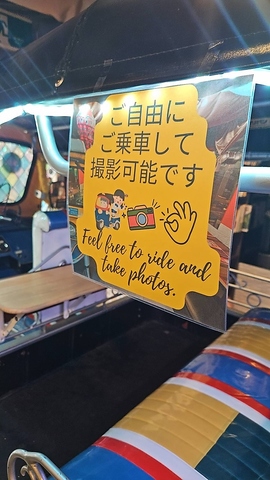 ご自由に
ご乗車して
撮影可能です
Feel free to ride and
take photos.